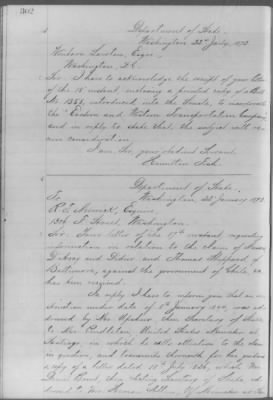 302
Department of State.
Washington 22d Jany. 1873.
Esqre.
Washington, D.C.
Sir: I have to acknowledge the receipt of your letter
of the 18 instant, inclosing a printed copy of a Bill
No. 1353, introduced into the Senate, to incorporate
the "Eastern and Western Transportation Company"
and in reply to state that, the subject will re-
ceive consideration.
I am, Sir, your obedient Servant
Hamilton Fish.
Department of State.
To Washington, 22 January 1873.
Esquire,
Street, Washington.
Sir: Your letter of the 17th instant requesting
information in relation to the claim of Messrs
and Thomas Sheppard of
Baltimore, against the government of Chile, has
been received.
In reply I have to inform you that an in-
struction under date of January was ad-
dressed by Mr. Upshur then Secretary of State
to Mr. Pendleton, United States Minister at
Santiago, in which he calls attention to the case
in question, and transmits therewith for his perusal
a copy of a letter dated 15th July
the Acting Secretary of State ad-
dressed to Mr.